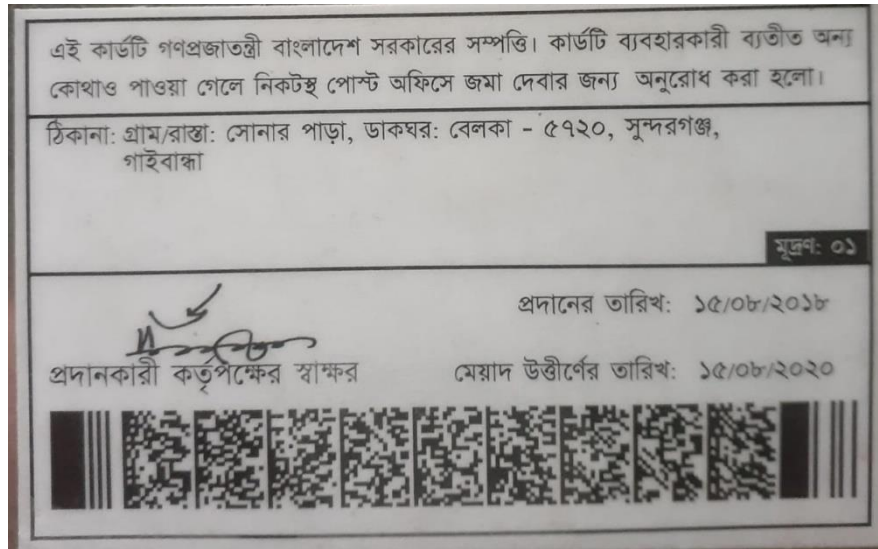 এই কার্ডটি গণপ্রজাতন্ত্রী বাংলাদেশ সরকারের সম্পত্তি। কার্ডটি ব্যবহারকারী ব্যতীত অন্য
কোথাও পাওয়া গেলে নিকটস্থ পোস্ট অফিসে জমা দেবার জন্য অনুরোধ করা হলো।
ঠিকানা: গ্রাম/রাস্তা: সোনার পাড়া, ডাকঘর: বেলকা - ৫৭২০, সুন্দরগঞ্জ,
গাইবান্ধা
মূদ্রণ: ০১
প্রদানের তারিখ: ১৫/০৮/২০১৮
প্রদানকারী কর্তৃপক্ষের স্বাক্ষর মেয়াদ উত্তীর্ণের তারিখ: ১৫/০৮/২০২০